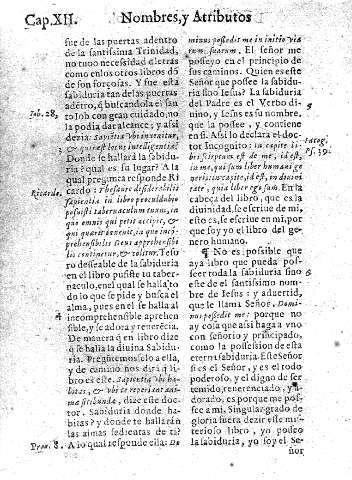 Cap.XII.
Nombres, y Atributos
fue de las puertas adentro
de la santissima Trinidad,
no tuuo necessidad de letras
como en los otros libros dõ
de son forçosas. Y fue esta
sabiduria tan de las puertas
adẽtro, q̃ buscandola el san
to Iob con gran cuidado, no
la podia dar alcance; y assi
dezia: Sapiẽtia vbi inuenitur,
& quis est locus intelligentiæ?
Donde se hallarà la sabidu
ria? qual es su lugar? A la
qual pregunta responde Ri
cardo: Thesaurũ desiderabilis
sapientiæ in libro
posuisti tabernaculum tuum, in
quo omnis qui petit accipit, &
qui quærit inuenit, in quo incõ
prehensibilis Deus apprehensibi
lis continetur, & colitur. Teso
ro desseable de la sabiduria
en el libro pusiste tu taber-
naculo, en el qual se halla to
do lo que se pide y busca el
alma, pues en el se halla al
incomprehensible aprehen
sible, y se adora y reuerẽcia.
De manera q̃ en libro dize
q̃ se halla la diuina Sabidu-
ria. Pregũtemoslo a ella,
y de camino nos dirà q̃ li
bro es este. Sapientia vbi ha
bitas, & vbi te reperient ani
mæ sitibundæ, dize este doc
tor. Sabiduria donde ha-
bitas? y donde te hallarán
las almas sedientas de ti?
A lo qual responde ella: Do
Iob. 28.
Ricardo.
4
Prou. 8.
minus possedit me in initio via
rum suarum. El señor me
posseyò en el principio de
sus caminos. Quien es este
Señor que possee la sabidu
ria sino Iesus? La sabiduria
del Padre es el Verbo diui-
nino, y Iesus es su nombre,
que la possee, y contiene
en si. Assi lo declara el doc
tor Incognito: in capite li
bri scriptum est de me, id est,
in me, qui sum liber humani ge
neris, id est, in diuini
tate, quia liber ego sum. En la
cabeça del libro, que es la
diuinidad, se escriue de mi,
esto es, se escriue en mi, por
que soy yo el libro del ge-
nero humano.
¶ No es possible que
aya libro que pueda pos-
seer toda la sabiduria sino
este del santissimo nombre
de Iesus: y aduertid,
que le llama Señor, Domi-
nus possedit me: porque no
ay cosa que assi haga a vno
con señorio y principado,
como la possession de esta
eterna sabiduria. Este Señor
si es el Señor, y es el todo
poderoso, y el digno de ser
temido, reuerenciado, y a-
dorado, es porque me pos-
see a mi. Singular grado de
gloria fuera dezir este mis-
terioso libro, yo posseo
la sabiduria, yo soy el Se-
ñor
5
Psf. 39.
6